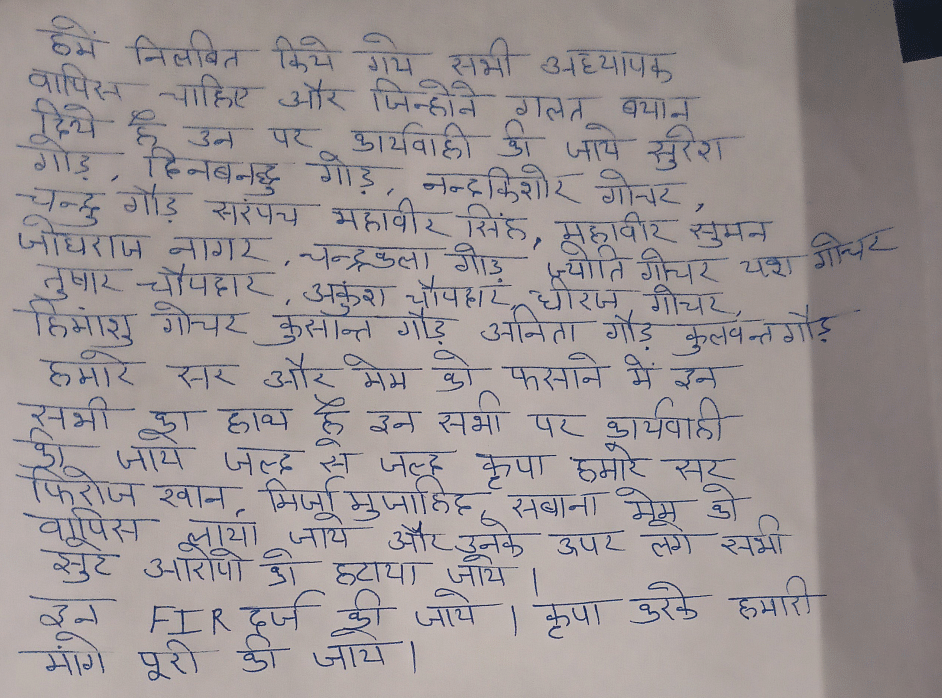 हमें निलंबित किये गये सभी अध्यापक
वापिस चाहिए और जिन्होंने गलत बयान
दिये है उन पर कार्यवाही की जाये सुरेश
गौड़, दिनबनधु गौड़, नन्दकिशोर गोचर,
चन्दु गौड़ सरंपच महावीर सिंह, महावीर सुमन
जोधराज नागर, चन्द्रकला गौड़ ज्योति गोचर यश गोचर
तुषार चौपदार, अकुंश चौपदार, धीरज गोचर,
हिमांशु गोचर कुसान्त गौड़ अनिता गौड़ कुलवन्त गौड़
हमारे सर और मेम को फसाने में इन
सभी का हाथ है इन सभी पर कार्यवाही
की जाये जल्द से जल्द कृपा हमारे सर
फिरोज खान, मिर्जा मुजाहिद, सबाना मेम को
वापिस लाया जाये और उनके उपर लगे सभी
झुटे आरोपो को हटाया जाये।
इन FIR दर्ज की जाये। कृपा करके हमारी
मांगे पूरी की जाये।